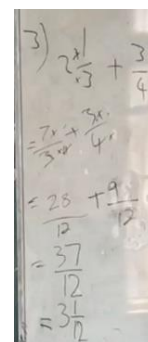 3) 2 1/3 + 3/4
= 7x/3x + 3x/4x
= 28/12 + 9/12
= 37/12
= 3 1/12